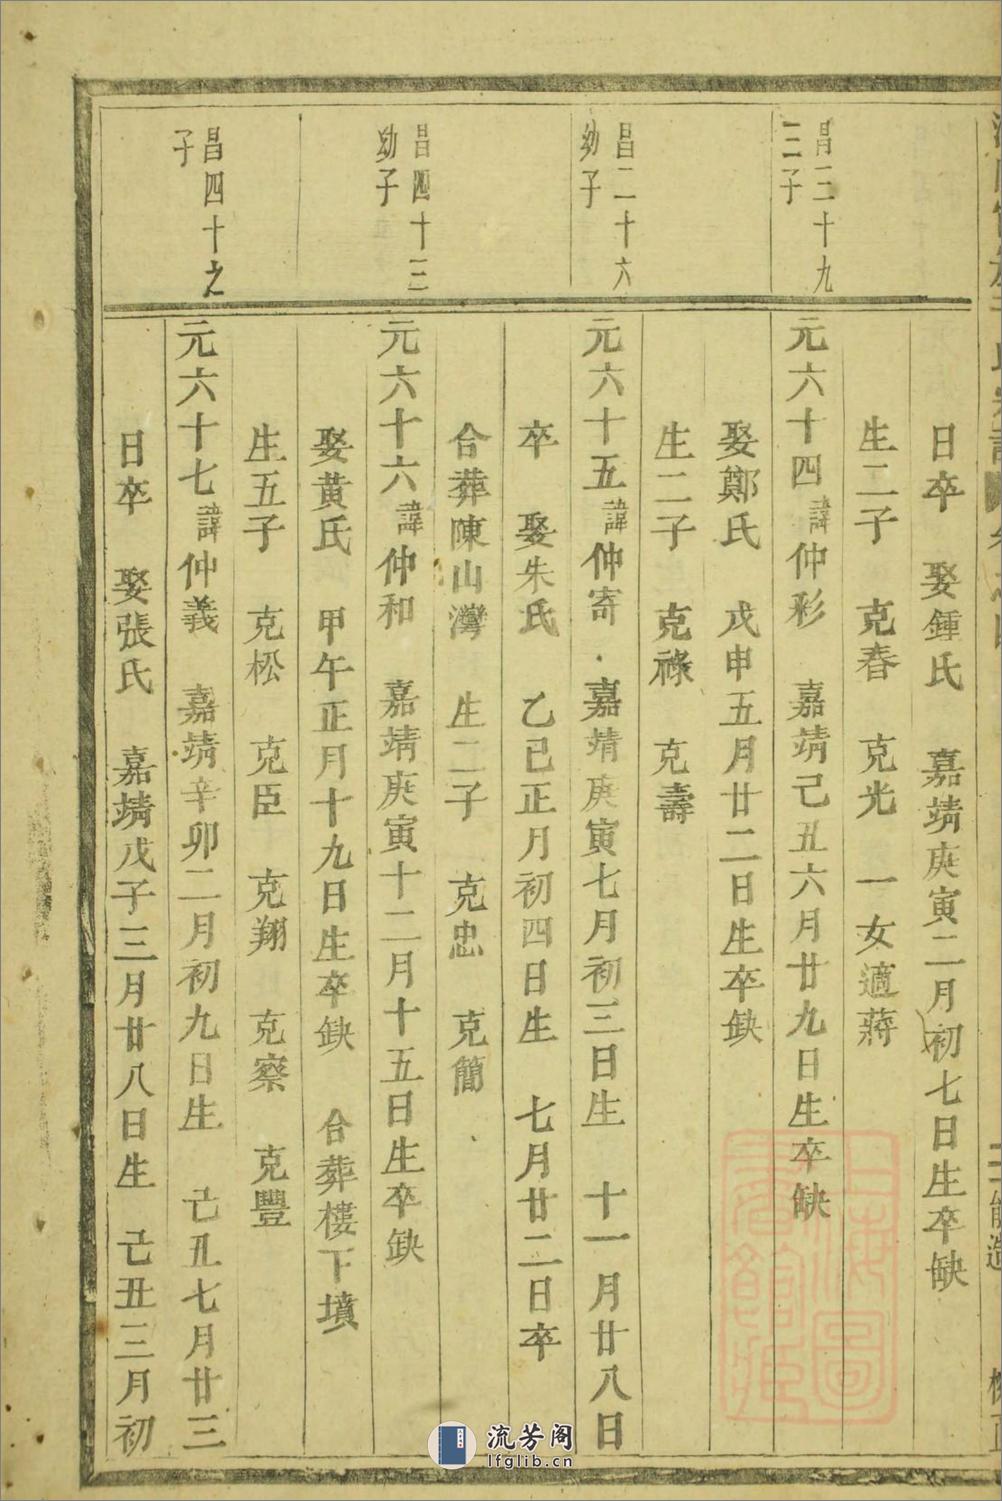 日卒　娶鍾氏　嘉靖庚寅二月初七日生卒缺
生二子　克春　克光　一女適蔣
昌二十九
三子
元六十四諱仲彩　嘉靖己丑六月廿九日生卒缺
娶鄭氏　戊申五月廿二日生卒缺
生二子　克祿　克壽
昌二十六
幼子
元六十五諱仲寄　嘉靖庚寅七月初三日生　十一月廿八日
卒　娶朱氏　乙已正月初四日生　七月廿二日卒
合葬陳山灣　生二子　克忠　克簡
昌四十三
幼子
元六十六諱仲和　嘉靖庚寅十二月十五日生卒缺
娶黄氏　甲午正月十九日生卒缺　合葬樓下墳
生五子　克松　克臣　克翔　克察　克豐
昌四十之
子
元六十七諱仲義　嘉靖辛卯二月初九日生　己丑七月廿三
日卒　娶張氏　嘉靖戊子三月廿八日生　己丑三月初
上海圖
書館藏
流芳阁
lfglib.cn